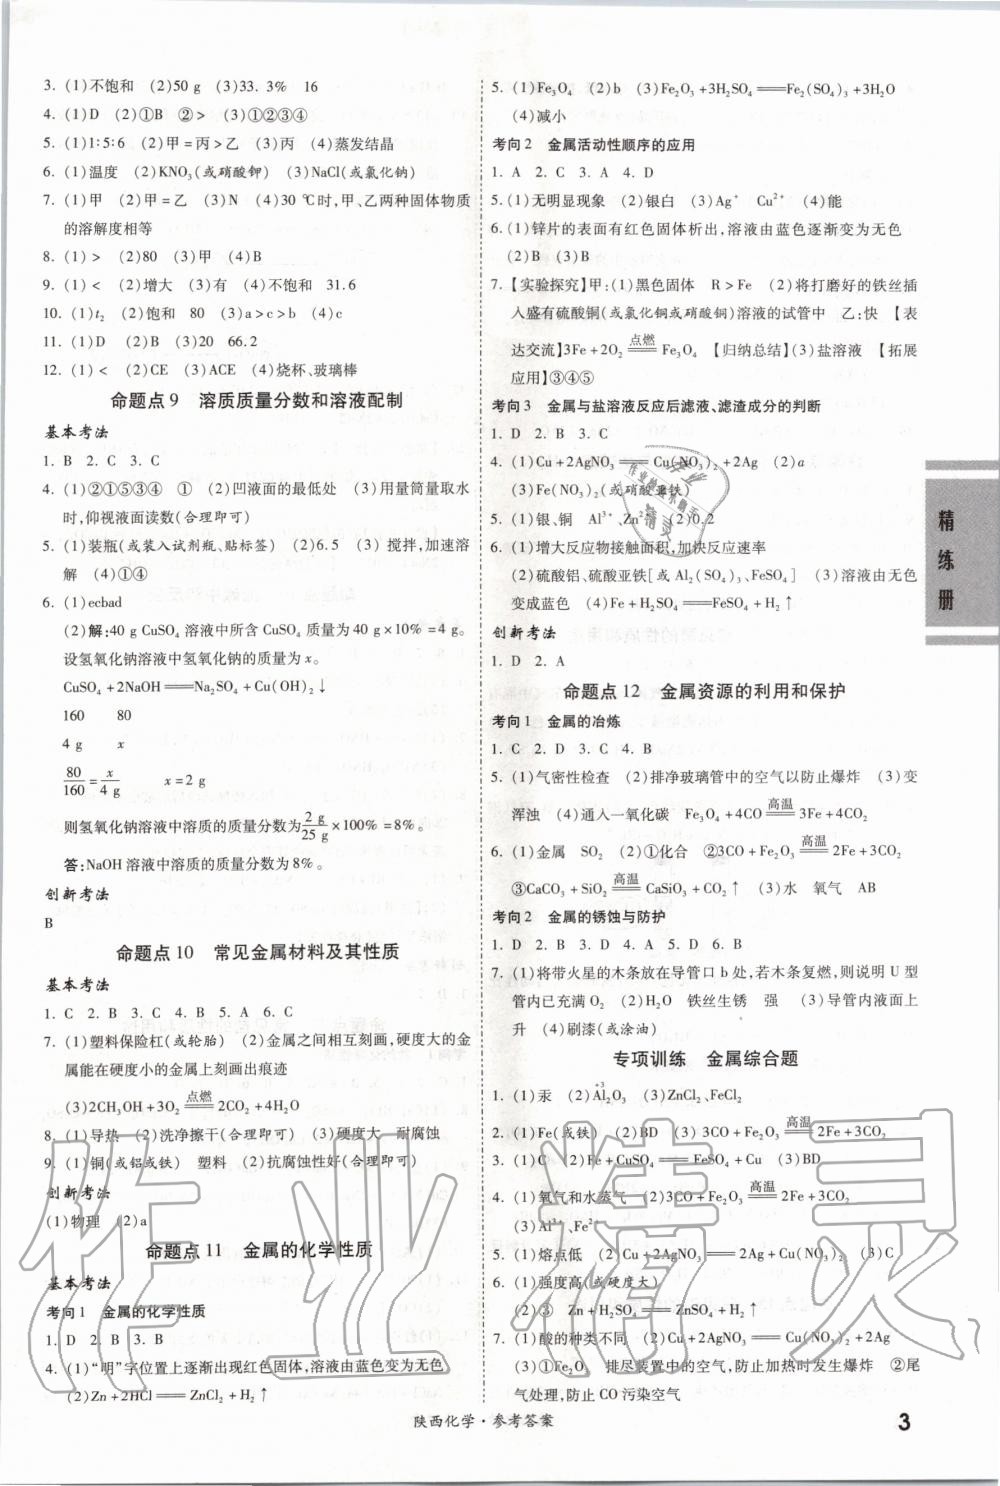 3. (1)不饱和 (2)50 g (3)33. 3% 16
4. (1)D (2)①B ②> (3)①②③④
5. (1)1∶5∶6 (2)甲=丙>乙 (3)丙 (4)蒸发结晶
6. (1)温度 (2)KNO₃(或硝酸钾) (3)NaCl(或氯化钠)
7. (1)甲 (2)甲=乙 (3)N (4)30 ℃时,甲、乙两种固体物质
的溶解度相等
8. (1)> (2)80 (3)甲 (4)B
9. (1)< (2)增大 (3)有 (4)不饱和 31.6
10. (1)t₂ (2)饱和 80 (3)a>c>b (4)c
11. (1)D (2)B (3)20 66.2
12. (1)< (2)CE (3)ACE (4)烧杯、玻璃棒
命题点9 溶质质量分数和溶液配制
基本考法
1. B 2. C 3. C
4. (1)②①⑤③④ ① (2)凹液面的最低处 (3)用量筒量取水
时,仰视液面读数(合理即可)
5. (1)装瓶(或装入试剂瓶、贴标签) (2)6.5 (3) 搅拌,加速溶
解 (4)①④
6. (1)ecbad
(2)解:40 g CuSO₄ 溶液中所含 CuSO₄ 质量为 40 g×10%=4 g。
设氢氧化钠溶液中氢氧化钠的质量为 x。
CuSO₄+2NaOH══Na₂SO₄+Cu(OH)₂↓
160 80
4 g x
80/160=x/4 g x=2 g
则氢氧化钠溶液中溶质的质量分数为2 g/25 g×100%=8%。
答:NaOH 溶液中溶质的质量分数为8%。
创新考法
B
命题点10 常见金属材料及其性质
基本考法
1. C 2. B 3. C 4. B 5. A 6. C
7. (1)塑料保险杠(或轮胎) (2)金属之间相互刻画,硬度大的金
属能在硬度小的金属上刻画出痕迹
(3)2CH₃OH+3O₂ 点燃══ 2CO₂+4H₂O
8. (1)导热 (2)洗净擦干(合理即可) (3)硬度大 耐腐蚀
9. (1)铜(或铝或铁) 塑料 (2)抗腐蚀性好(合理即可)
创新考法
(1)物理 (2)a
命题点11 金属的化学性质
基本考法
考向1 金属的化学性质
1. D 2. B 3. B
4. (1)“明”字位置上逐渐出现红色固体,溶液由蓝色变为无色
(2)Zn+2HCl══ZnCl₂+H₂↑
5. (1)Fe₃O₄ (2)b (3)Fe₂O₃+3H₂SO₄══Fe₂(SO₄)₃+3H₂O
(4)减小
考向2 金属活动性顺序的应用
1. A 2. C 3. A 4. D
5. (1)无明显现象 (2)银白 (3)Ag⁺ Cu²⁺ (4)能
6. (1)锌片的表面有红色固体析出,溶液由蓝色逐渐变为无色
(2)B (3)B
7. 【实验探究】甲:(1)黑色固体 R>Fe (2)将打磨好的铁丝插
入盛有硫酸铜(或氯化铜或硝酸铜)溶液的试管中 乙:快 【表
达交流】3Fe+2O₂ 点燃══ Fe₃O₄ 【归纳总结】(3)盐溶液 【拓展
应用】③④⑤
考向3 金属与盐溶液反应后滤液、滤渣成分的判断
1. D 2. B 3. C
4. (1)Cu+2AgNO₃══Cu(NO₃)₂+2Ag (2)a
(3)Fe(NO₃)₂(或硝酸亚铁)
5. (1)银、铜 Al³⁺、Zn²⁺ (2)0.2
6. (1)增大反应物接触面积,加快反应速率
(2)硫酸铝、硫酸亚铁[或 Al₂(SO₄)₃、FeSO₄] (3)溶液由无色
变成蓝色 (4)Fe+H₂SO₄══FeSO₄+H₂↑
创新考法
1. D 2. A
命题点12 金属资源的利用和保护
考向1 金属的冶炼
1. C 2. D 3. C 4. B
5. (1)气密性检查 (2)排净玻璃管中的空气以防止爆炸 (3)变
浑浊 (4)通入一氧化碳 Fe₃O₄+4CO 高温══ 3Fe+4CO₂
6. (1)金属 SO₂ (2)①化合 ②3CO+Fe₂O₃ 高温══ 2Fe+3CO₂
③CaCO₃+SiO₂ 高温══ CaSiO₃+CO₂↑ (3)水 氧气 AB
考向2 金属的锈蚀与防护
1. D 2. B 3. D 4. A 5. D 6. B
7. (1)将带火星的木条放在导管口b处,若木条复燃,则说明U型
管内已充满O₂ (2)H₂O 铁丝生锈 强 (3)导管内液面上
升 (4)刷漆(或涂油)
专项训练 金属综合题
1. (1)汞 (2)Al₂O₃(+3) (3)ZnCl₂、FeCl₂
2. (1)Fe(或铁) (2)BD (3) 3CO+Fe₂O₃ 高温══ 2Fe+3CO₂
3. (1)C (2)Fe+CuSO₄══FeSO₄+Cu (3)BD
4. (1)氧气和水蒸气 (2)3CO+Fe₂O₃ 高温══ 2Fe+3CO₂
(3)Al³⁺、Fe²⁺
5. (1)熔点低 (2)Cu+2AgNO₃══2Ag+Cu(NO₃)₂ (3)C
6. (1)强度高(或硬度大)
(2)③ Zn+H₂SO₄══ZnSO₄+H₂↑
7. (1)酸的种类不同 (2)Cu+2AgNO₃══Cu(NO₃)₂+2Ag
(3)①Fe₂O₃ 排尽装置中的空气,防止加热时发生爆炸 ②尾
气处理,防止CO污染空气
精练册
陕西化学·参考答案
3
作业精灵